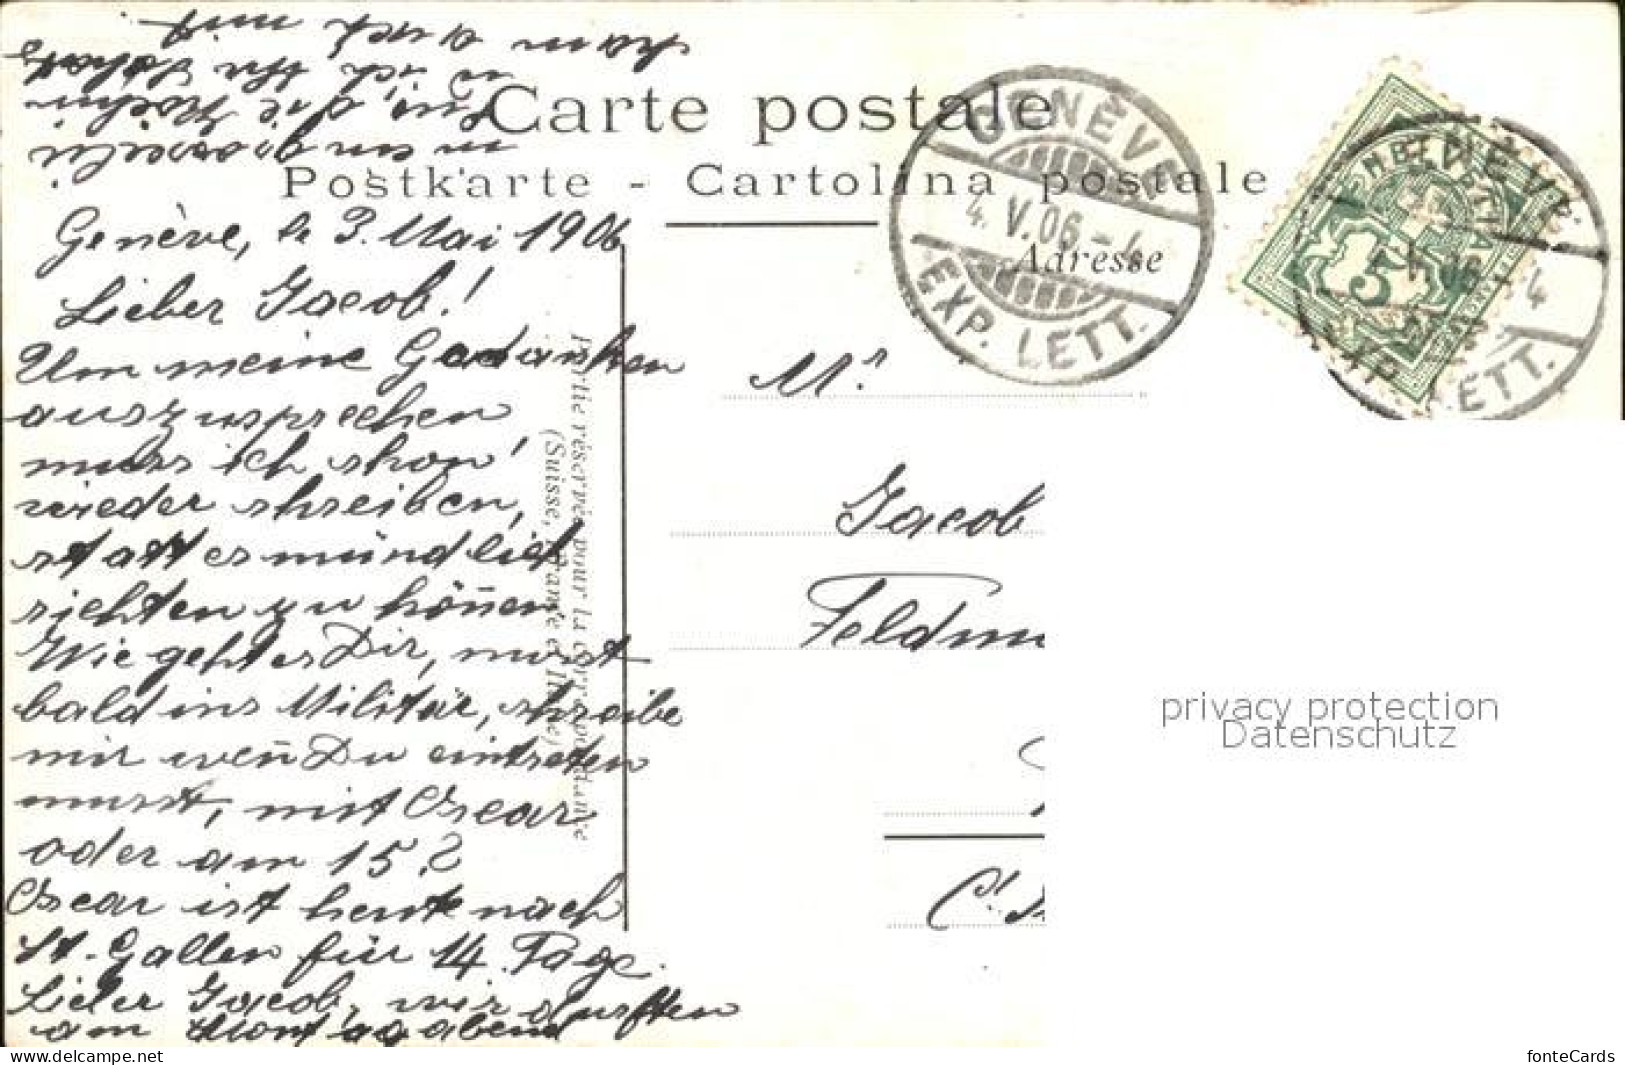 Carte postale
Postkarte - Cartolina postale
Adresse
GENÈVE
4. V. 06 - 4
EXP. LETT.
HELVETIA
5
Partie réservée pour la correspondance
(Suisse, France et Italie)
Genève, le 3. Mai 1906
Lieber Jacob!
Um meine Gedanken
auszusprechen
muss ich shon
wieder shreiben,
statt es mündlich
richten zu können
Wie geht es Dir, musst
bald ins Militär, shreibe
mir wen̄ Du eintreten
musst, mit Oscar
oder am 15?
Oscar ist heute nach
St. Gallen für 14 Tage.
Lieber Jacob, wir durften
am Montag abend
die
ich Ihr
kam auch mit
Mr.
Jacob
Feldm
privacy protection
Datenschutz
www.delcampe.net
fonteCards